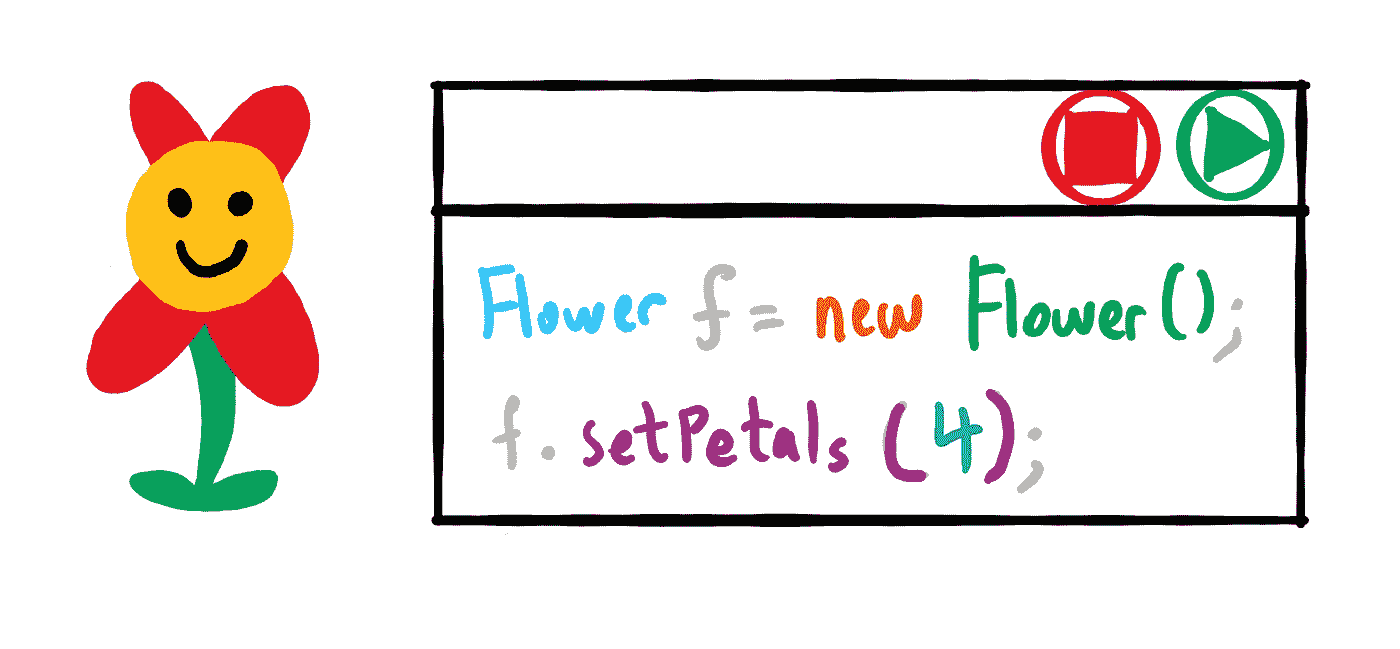 Flower f = new Flower();
f.setPetals(4);